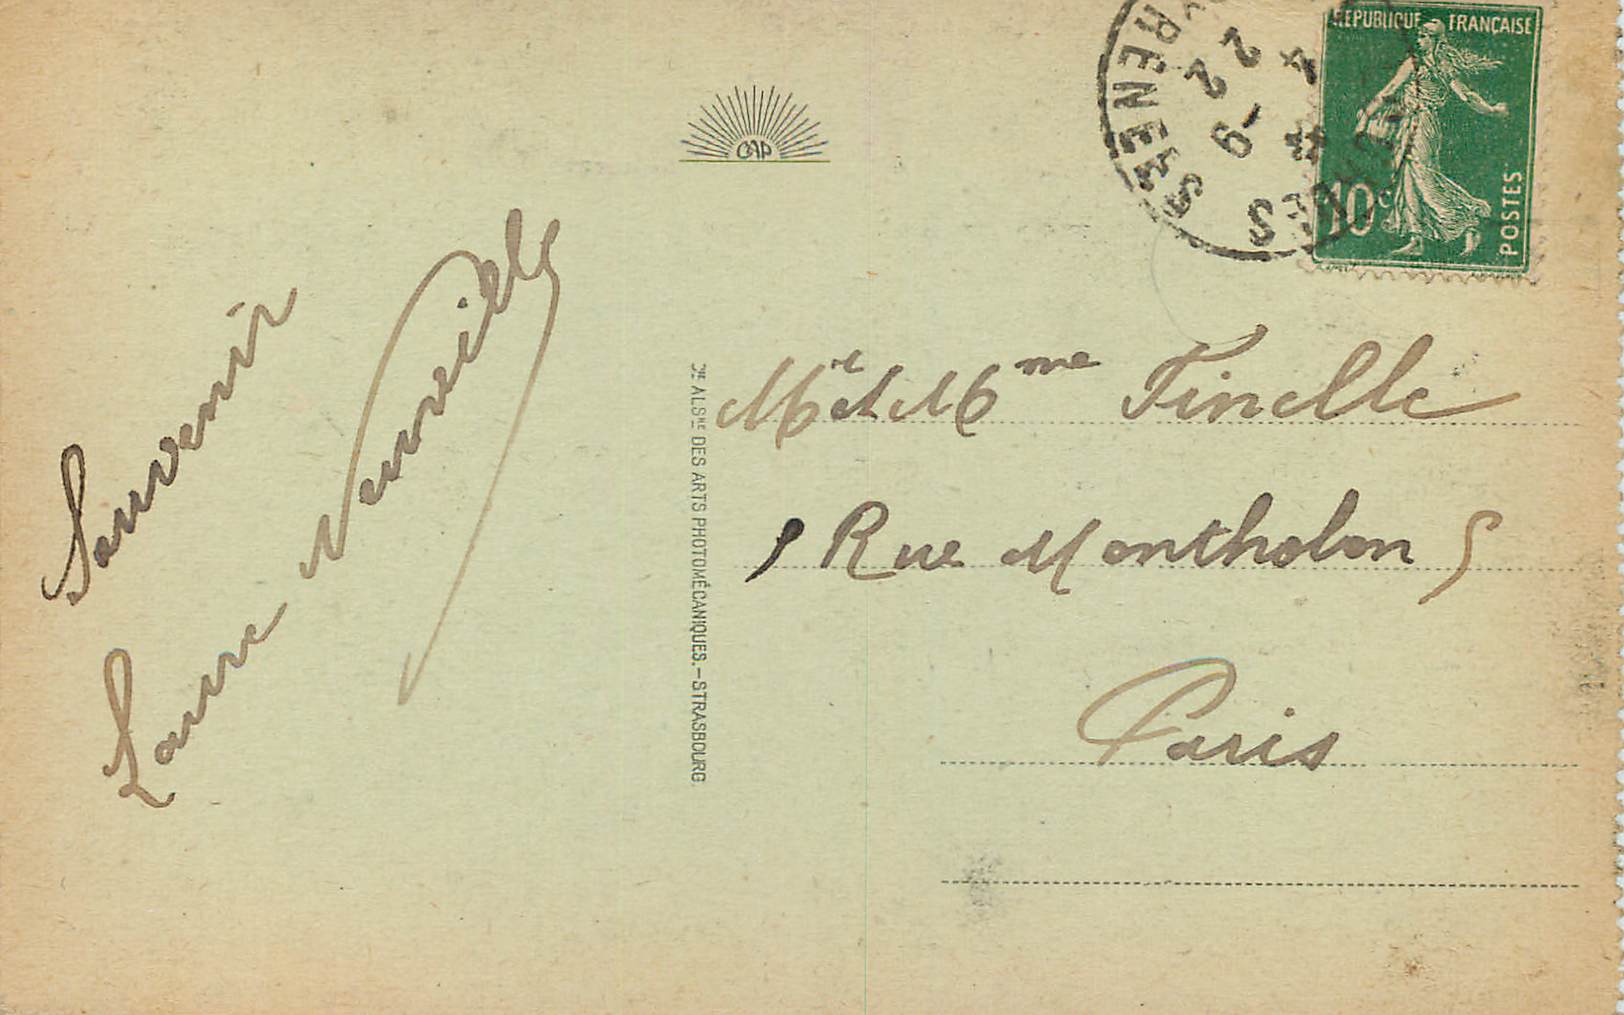 Souvenir
Laure Neuville
CAP
Cie ALSNE DES ARTS PHOTOMÉCANIQUES.—STRASBOURG
RÉPUBLIQUE FRANÇAISE
10c
POSTES
22 -9
Mr et Mme Finelle
Rue Montholon 5
Paris